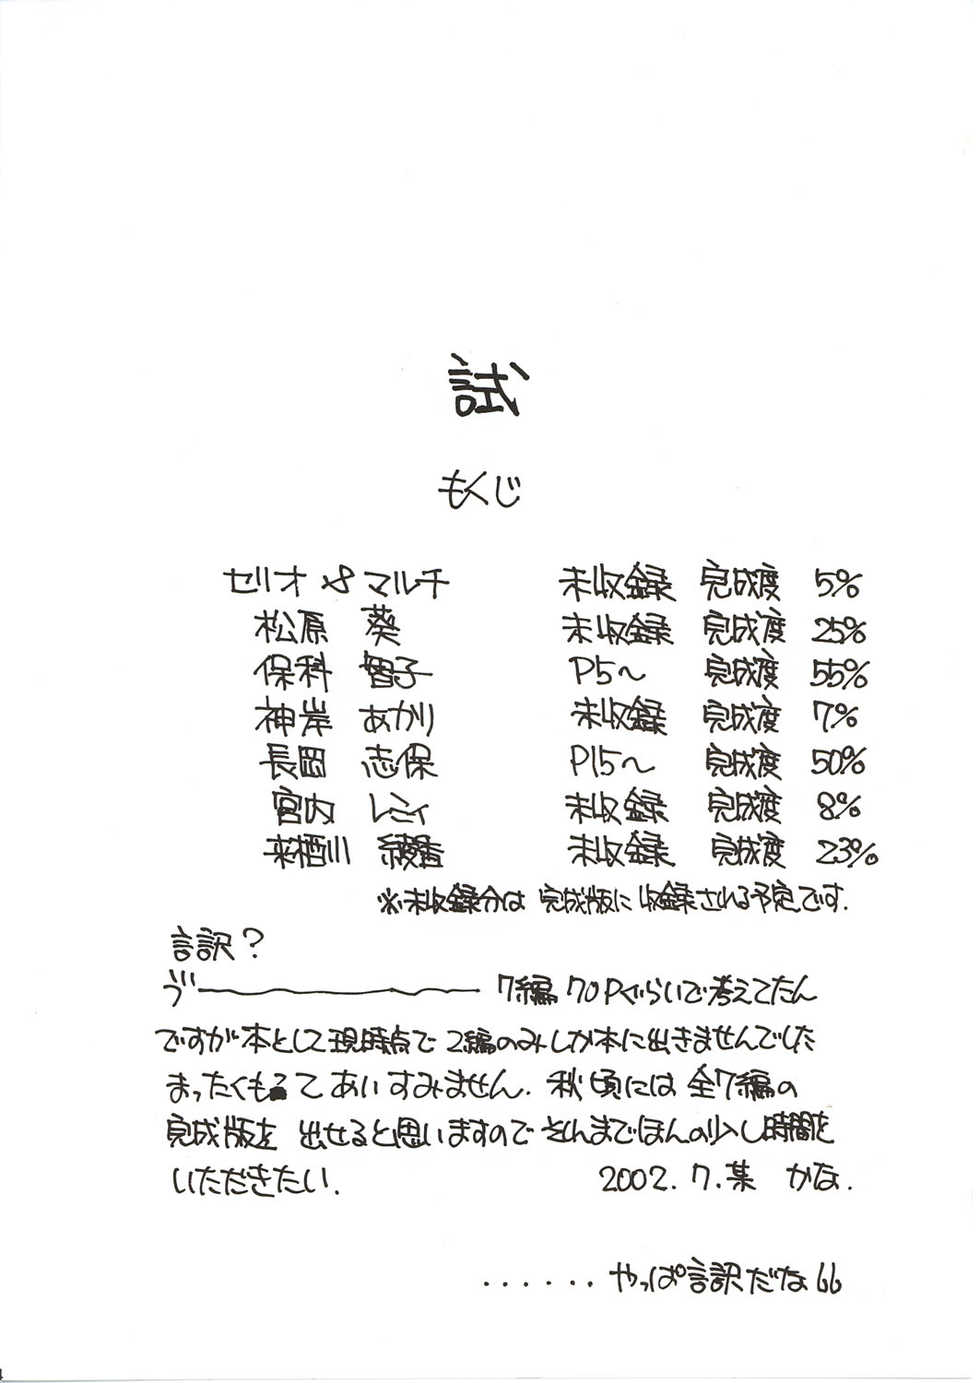 試
もくじ
セリオ & マルチ 未収録 完成度 5%
松原 葵 未収録 完成度 25%
保科 智子 P5〜 完成度 55%
神岸 あかり 未収録 完成度 7%
長岡 志保 P15〜 完成度 50%
宮内 レミィ 未収録 完成度 8%
来栖川 綾香 未収録 完成度 23%
※未収録分は 完成版に収録される予定です.
言訳?
づ――――― 7編 70Pぐらいで考えてたん
ですが本として現時点で 2編のみしか本に出きませんでした
まったくも って あいすみません. 秋頃には 全7編の
完成版を 出せると思いますので そんまでほんの少し時間を
いただきたい. 2002.7.某 かな.
......やっぱ言訳だな
4